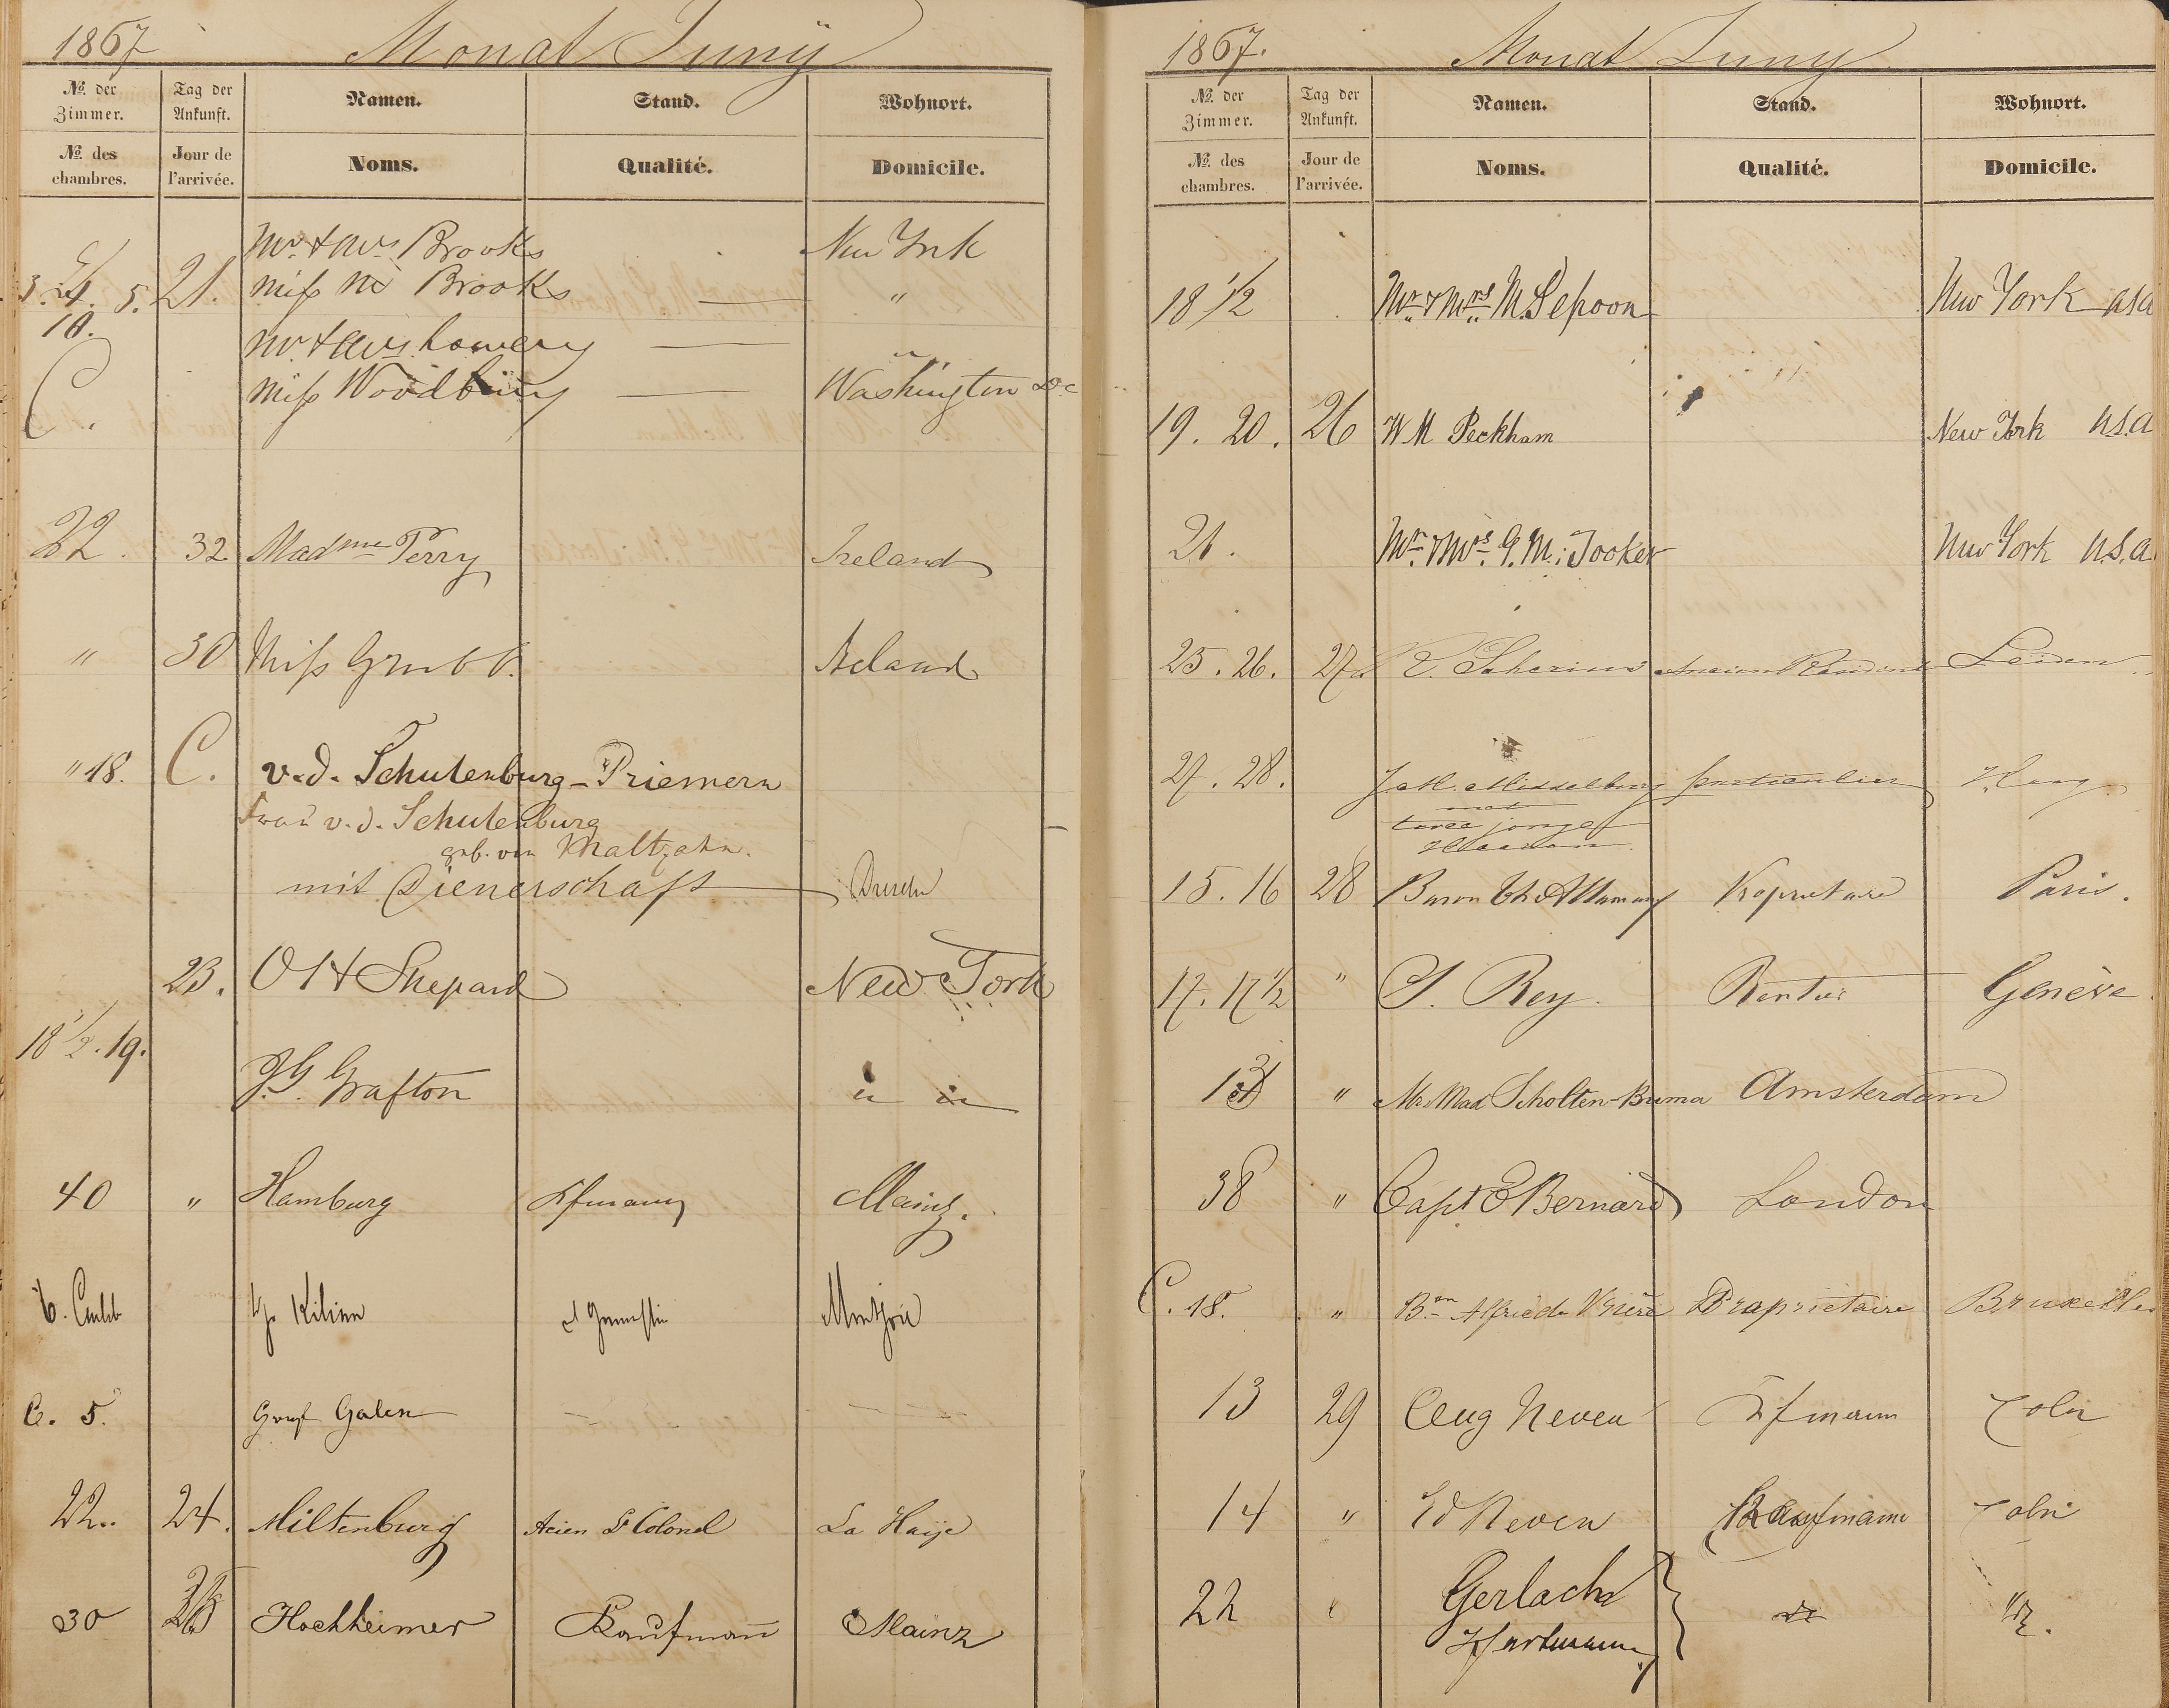 1867 Monat Juny
No. der Zimmer. Tag der Ankunft. Namen. Stand. Wohnort.
No. des chambres. Jour de l'arrivée. Noms. Qualité. Domicile.
Mr. & Mrs. Brooks New York
3. 4. 5. 21. Miss Brooks — "
10. Mr. & Mrs. Lowery —
C. Miss Woodbury — Washington D.C
22. 32 Madme Perry Ireland
" 30 Miss Grubb. Ireland
" 18. C. v. d. Schulenburg-Priemern
Frau v. d. Schulenburg
geb. von Maltzahn.
mit Dienerschaft — Dresden
23. O H Shepard New York
18 1/2. 19.
J. G. Grafton " "
40 " Hamburg Kfmann Mainz.
Kilian Montjoie
C. 5. Graf Galen — —
22.. 24. Miltenburg Acien Lt Colonel La Haije
30 25 Hochheimer Kaufmann Mainz
1867. Monat Juny
No. der Zimmer. Tag der Ankunft. Namen. Stand. Wohnort.
No. des chambres. Jour de l'arrivée. Noms. Qualité. Domicile.
18 1/2 Mr. & Mrs. M. Sepoon New York USA
19. 20. 26 W M Peckham New York U.S.A
21. Mr. & Mrs. G. M. Tooker New York U.S.A.
25. 26. 27 Ancien Resident Leiden
27. 28. J. M. Middelburg particulier Haag.
met
twee jonge
15. 16 28 Baron Propriétaire Paris.
17. 17 1/2 " S. Rey. Rentier Genève.
13 " Mr & Mad Scholten-Buma Amsterdam
38 " Capt. E Bernard London
C. 18. " Bon Propriétaire Bruxelles
13 29 Aug Neven Kfmann Coln
14 " Ed Neven Kaufmann Coln
22 " Gerlach do
Hartmann